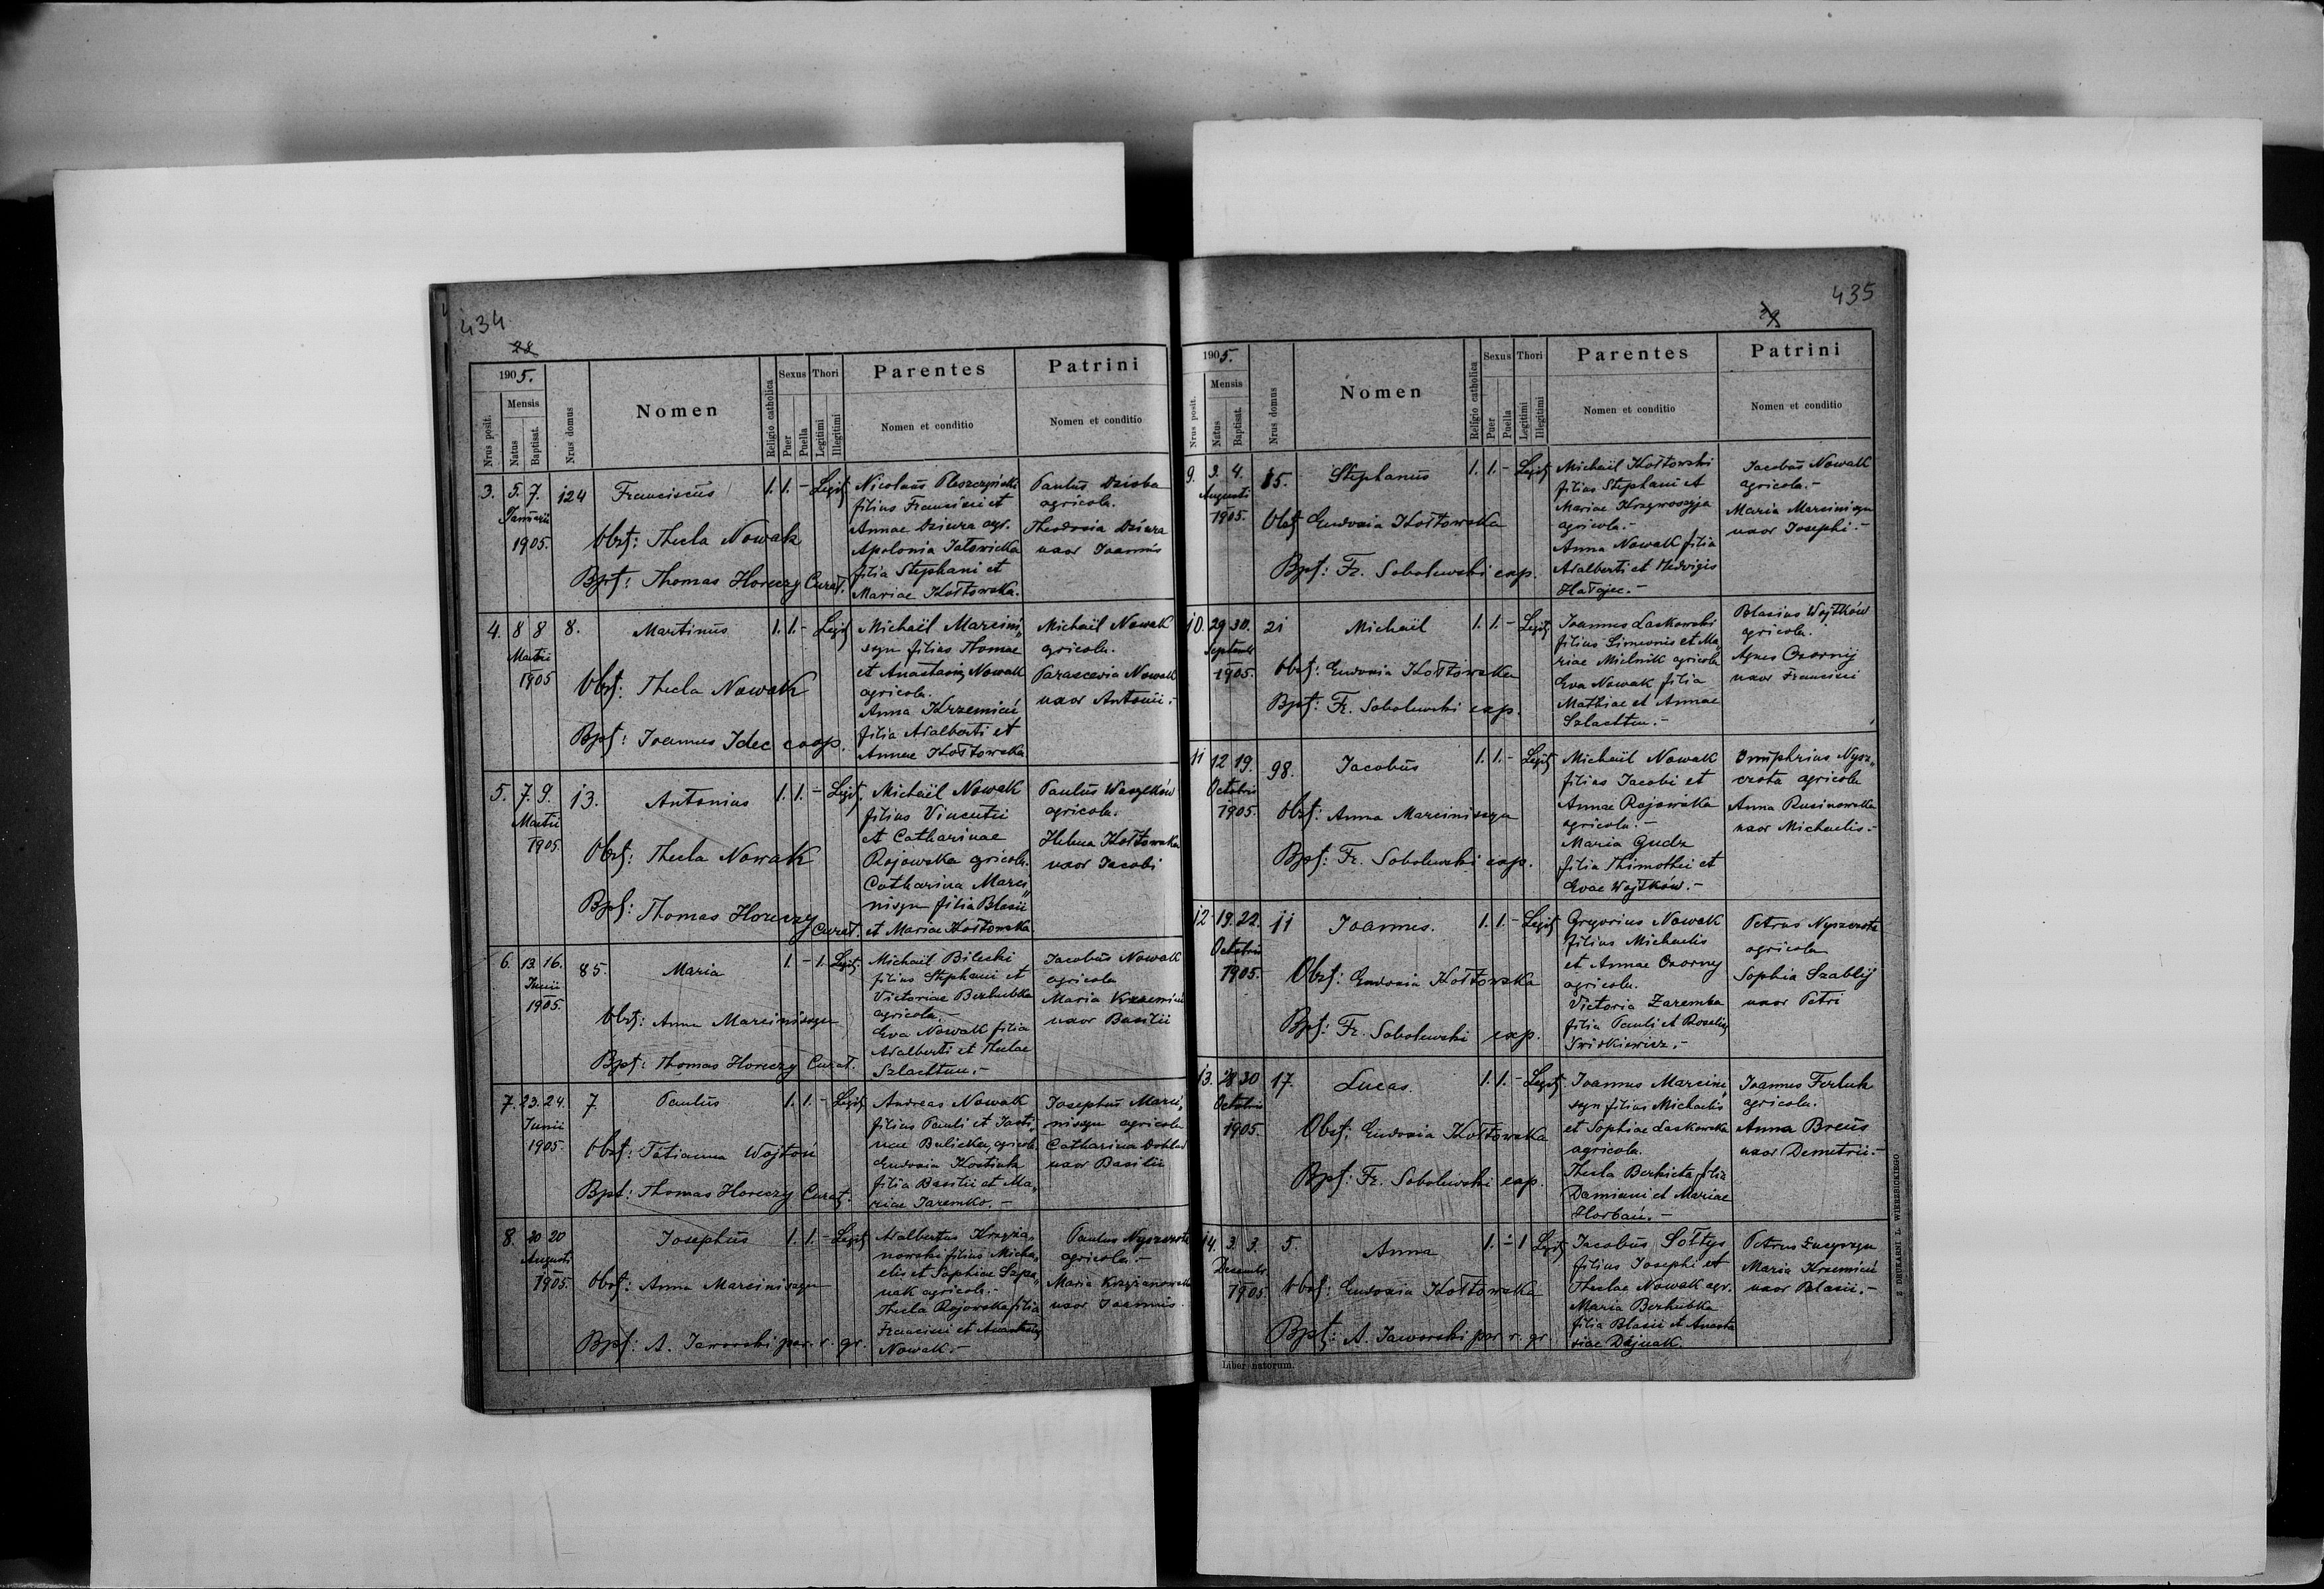 434
28
1905.
Nrus posit.
Mensis
Natus
Baptisat.
Nrus domus
Nomen
Religio catholica
Sexus
Puer
Puella
Thori
Legitimi
Illegitimi
Parentes
Nomen et conditio
Patrini
Nomen et conditio
3. 5. 7. 124 Franciscus 1. 1. - Legit.
Januarii
1905.
Obst: Thecla Nowak
Bpt: Thomas Horeczy Curat.
Nicolaus Pleszczyński
filius Francisci et
Annae Dziura agr.
Apolonia Jatowicka
filia Stephani et
Mariae Kołtowska.
Paulus Dzioba
agricola.
Theodosia Dziura
uxor Joannis
4. 8 8 8. Martinus 1. 1. - Legit
Martii
1905
Obst: Thecla Nowak
Bpt: Joannes Idec coop.
Michaël Marcini„
szyn filius Thomae
et Anastasiae Nowak
agricola.
Anna Krzemień
filia Adalberti et
Annae Kołtowska
Michaël Nowak
agricola.
Parascevia Nowak
uxor Antonii.-
5. 7. 9. 13. Antonius 1. 1. - Legit.
Martii
1905.
Obst: Thecla Nowak
Bpt: Thomas Horeczy Curat.
Michaël Nowak
filius Vincentii
et Catharinae
Rojowska agricola.
Catharina Marci„
niszyn filia Blasii
et Mariae Kołtowska
Paulus Waszlków
agricola.
Helena Kołtowska
uxor Jacobi
6. 13. 16. 85. Maria 1. - 1. Legit.
Junii
1905.
Obst: Anna Marciniszyn
Bpt: Thomas Horeczy Curat.
Michaël Bilecki
filius Stephani et
Victoriae Berhubka
agricola.-
Eva Nowak filia
Adalberti et Theclae
Szlachtun.-
Jacobus Nowak
agricola
Maria Krzemień
uxor Basilii
7. 23. 24. 7 Paulus 1. 1. - Legit
Junii
1905.
Obst: Tatianna Wojtoń
Bpt: Thomas Horeczy Curat.
Andreas Nowak
filius Pauli et Justi„
nae Bulicka, agricola
Eudosia Kostiuk
filia Basilii et Ma„
riae Jaremko.-
Josephus Marci„
niszyn agricola
Catharina
uxor Basilii
8. 20 20 Josephus 1. 1. - Legit
Augusti
1905.
Obst: Anna Marciniszyn
Bpt: A. Jaworski par. r. gr.
Adalbertus Krzyża„
nowski filius Micha„
elis et Sophiae Szpa„
nak agricola.-
Thecla Rojowska filia
Francisci et Anastasiae
Nowak.-
Paulus Nyszczota
agricola.-
Maria Krzyżanowska
uxor Joannis.
435
29
1905.
Nrus posit.
Mensis
Natus
Baptisat.
Nrus domus
Nomen
Religio catholica
Sexus
Puer
Puella
Thori
Legitimi
Illegitimi
Parentes
Nomen et conditio
Patrini
Nomen et conditio
9. 3. 4. 15. Stephanus 1. 1. - Legit
Augusti
1905.
Obst: Eudosia Kołtowska
Bpt: Fr. Sobolewski exp.
Michaël Kołtowski
filius Stephani et
Mariae Krzywoszyja
agricola.-
Anna Nowak filia
Adalberti et Hedvigis
Hałajec.-
Jacobus Nowak
agricola.-
Maria Marciniszyn
uxor Josephi.-
10. 29 30. 21 Michaël 1. 1. - Legit
Septemb
1905.
Obst: Eudosia Kołtowska
Bpt: Fr. Sobolewski exp.
Joannes Laskowski
filius Simeonis et Ma„
riae Mielnik agricola
Eva Nowak filia
Mathiae et Annae
Szlachtun.-
Blasius Wojtków
agricola.
Agnes Ozornij
uxor Francisci
11 12 19. 98. Jacobus 1. 1. - Legit
Octobris
1905.
Obst: Anna Marciniszyn
Bpt: Fr. Sobolewski exp.
Michaël Nowak
filius Jacobi et
Annae Rojowska
agricola.-
Maria Gudz
filia Thimothei et
Evae Wojtków.-
Onuphrius Nysz„
czota agricola
Anna Rusinowska
uxor Michaelis.-
12 19. 22. 11 Joannes. 1. 1. - Legit
Octobris
1905.
Obst: Eudosia Kołtowska
Bpt: Fr. Sobolewski exp.
Gregorius Nowak
filius Michaelis
et Annae Ozorny
agricola.
Victoria Zaremba
filia Pauli et Rosaliae
Iwiśkiewicz.-
Petrus Nyszczota
agricola
Sophia Szablij
uxor Petri
13. 28 30 17. Lucas. 1. 1. - Legit
Octobris
1905.
Obst: Eudosia Kołtowska
Bpt: Fr. Sobolewski exp.
Joannes Marcini„
szyn filius Michaelis
et Sophiae Laskowska
agricola.
Thecla Berkieta filia
Damiani et Mariae
Horbań.-
Joannes Ferluk
agricola.
Anna Breüs
uxor Demetrii.-
14. 3. 3. 5. Anna 1. - 1 Legit
Decemb.
1905
Obst: Eudosia Kołtowska
Bpt: A. Jaworski par. r. gr.
Jacobus Sołtys
filius Josephi et
Theclae Nowak agr.
Maria Berhubka
filia Blasii et Anasta
siae Dójnak.
Petrus
Maria Krzemień
uxor Blasii.-
Liber natorum.
Z DRUKARNI L. WIERZBICKIEGO